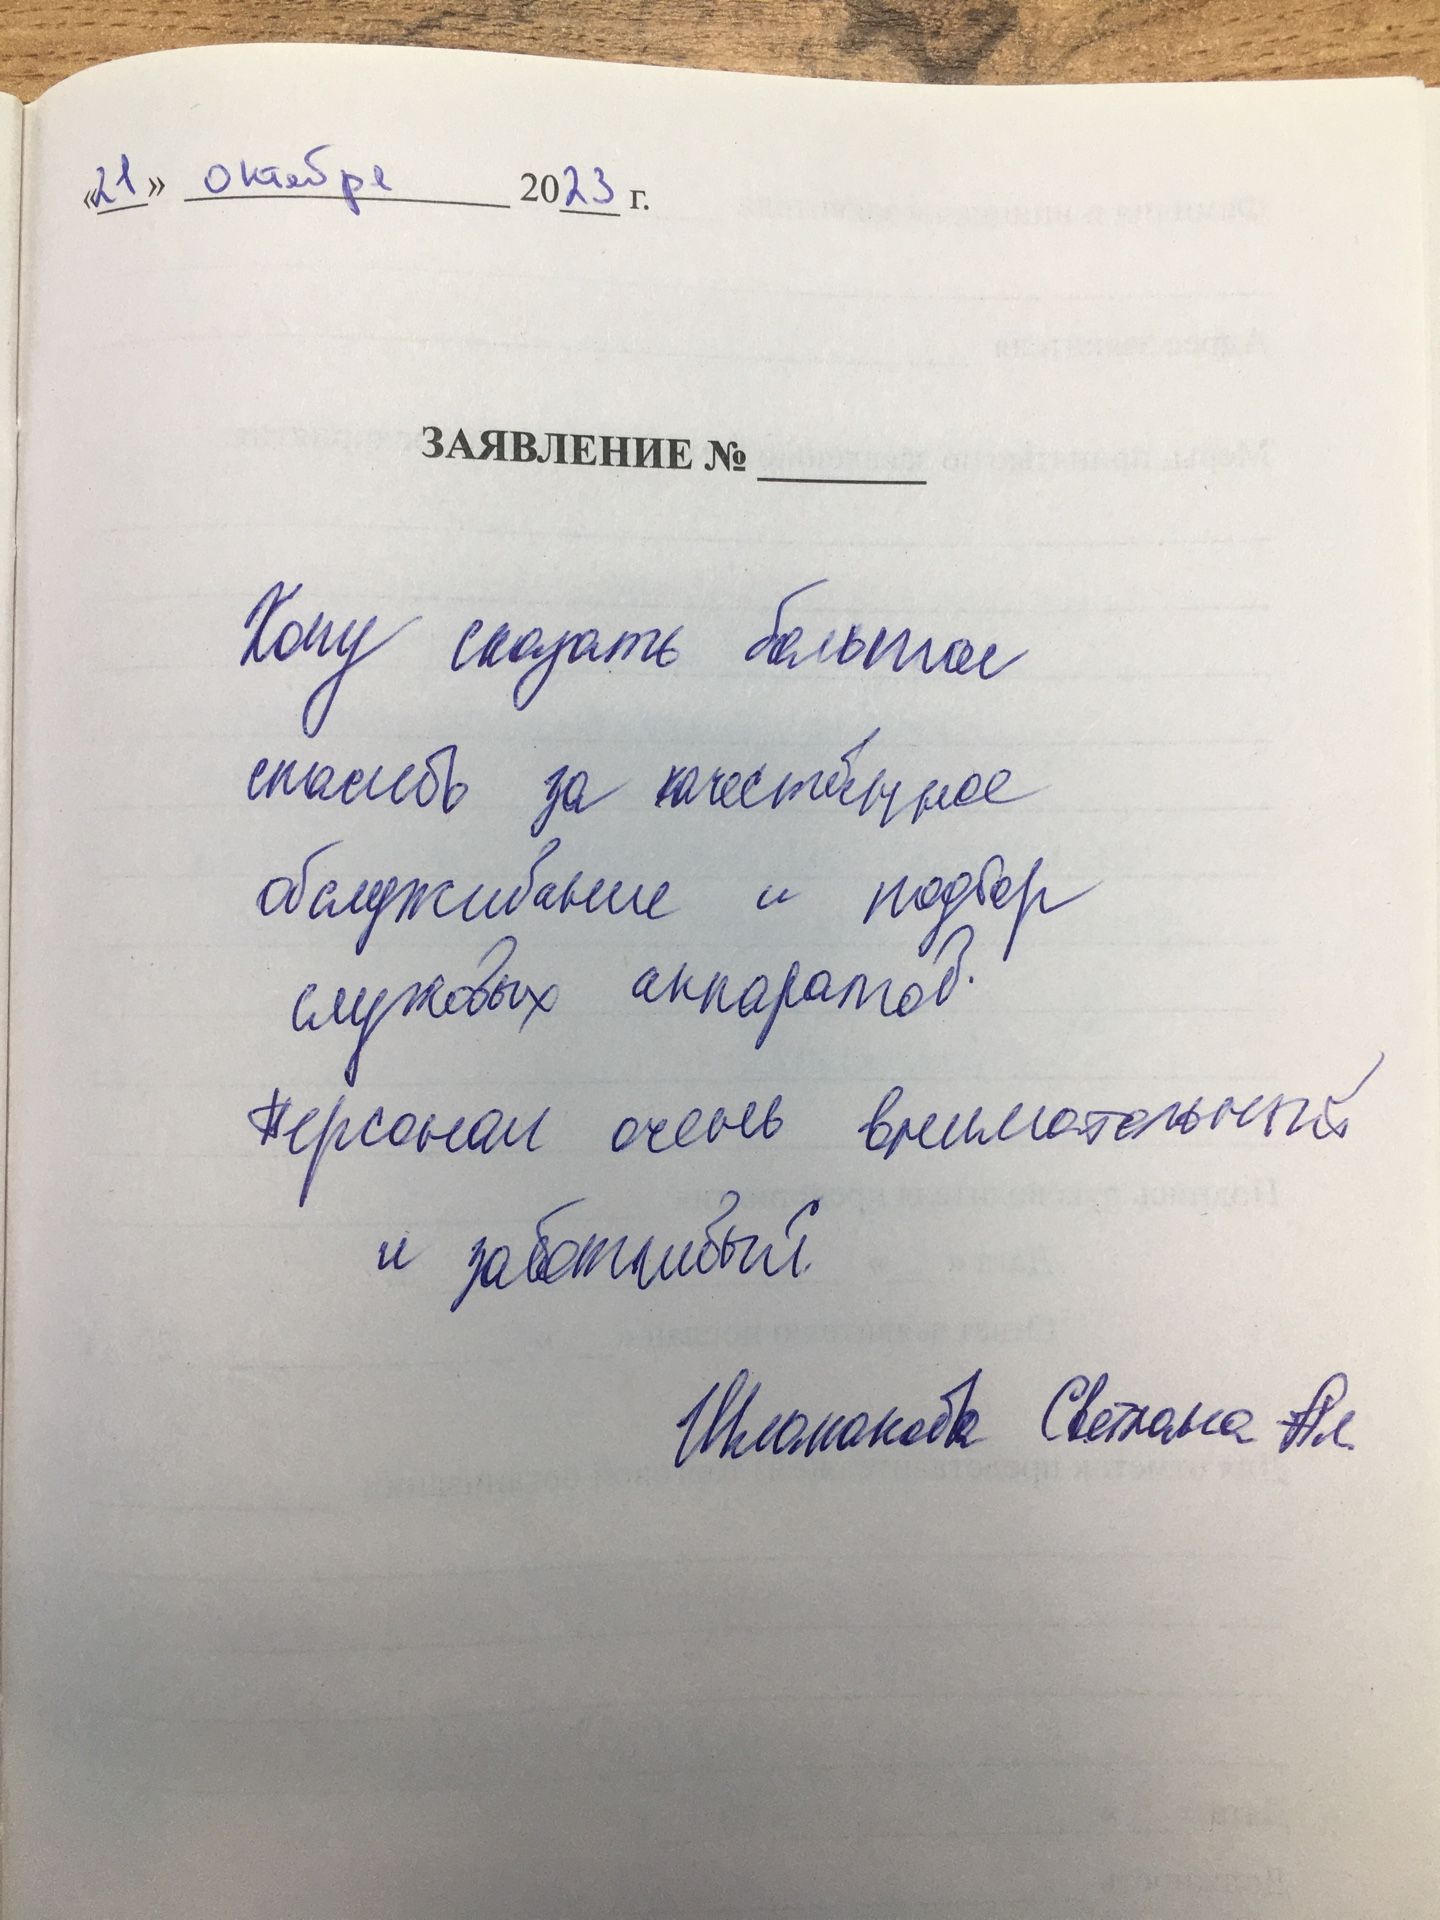 «21» октября 2023 г.
ЗАЯВЛЕНИЕ № ______
Хочу сказать большое
спасибо за качественное
обслуживание и подбор
служовых аппаратов.
Персонал очень внимательный
и заботливый.
Светлана